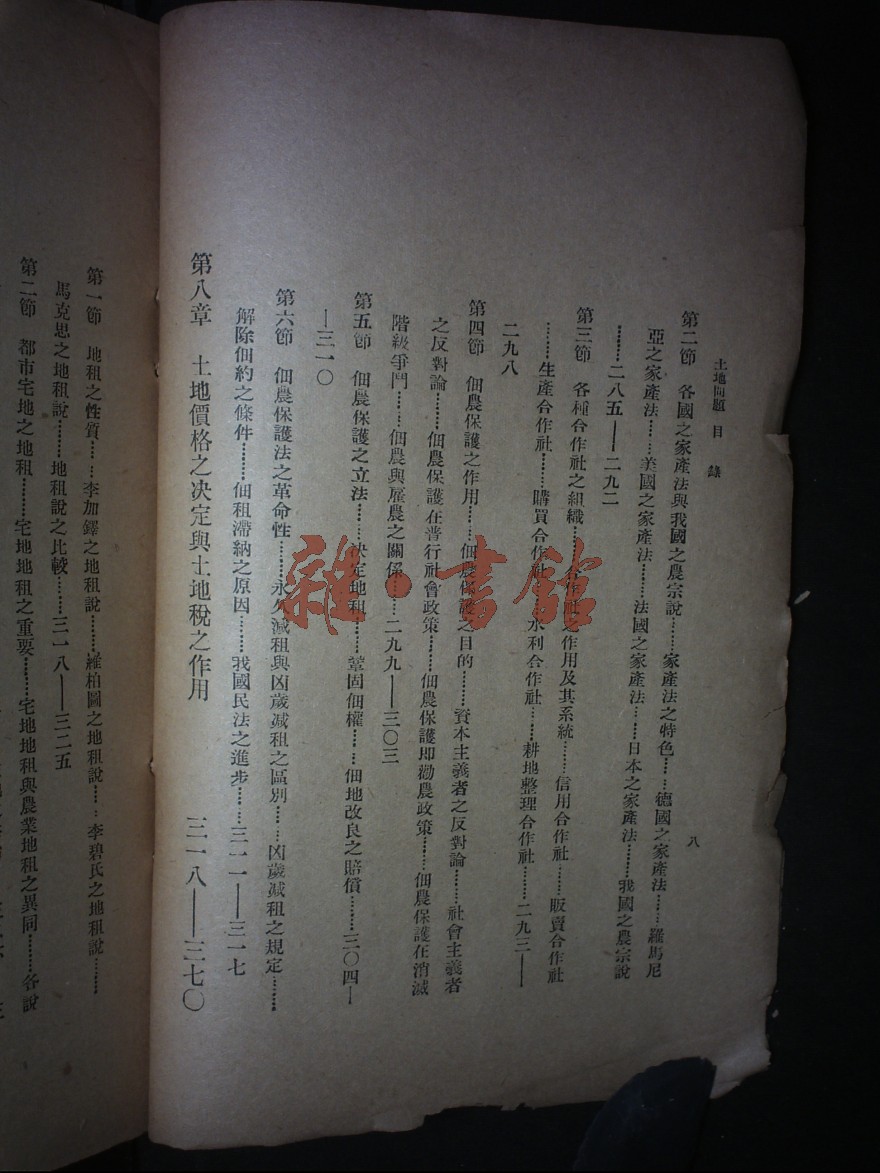 土地問題 目錄
八
第二節 各國之家產法與我國之農宗說……家產法之特色……德國之家產法……羅馬尼
亞之家產法……美國之家產法……法國之家產法……日本之家產法……我國之農宗說
……二八五——二九二
第三節 各種合作社之組織……合作社之作用及其系統……信用合作社……販賣合作社
……生產合作社……購買合作社……水利合作社……耕地整理合作社……二九三——
二九八
第四節 佃農保護之作用……佃農保護之目的……資本主義者之反對論……社會主義者
之反對論……佃農保護在普行社會政策……佃農保護即勸農政策……佃農保護在消滅
階級爭鬥……佃農與雇農之關係……二九九——三〇三
第五節 佃農保護之立法……決定地租……鞏固佃權……佃地改良之賠償……三〇四—
—三一〇
第六節 佃農保護法之革命性……永久減租與凶歲減租之區別……凶歲減租之規定……
解除佃約之條件……佃租滯納之原因……我國民法之進步……三一一——三一七
第八章 土地價格之決定與土地稅之作用 三一八——三七〇
第一節 地租之性質……李加鐸之地租說……羅柏圖之地租說……李碧氏之地租說……
馬克思之地租說……地租說之比較……三一八——三二五
第二節 都市宅地之地租……宅地地租之重要……宅地地租與農業地租之異同……各說
雜·書館